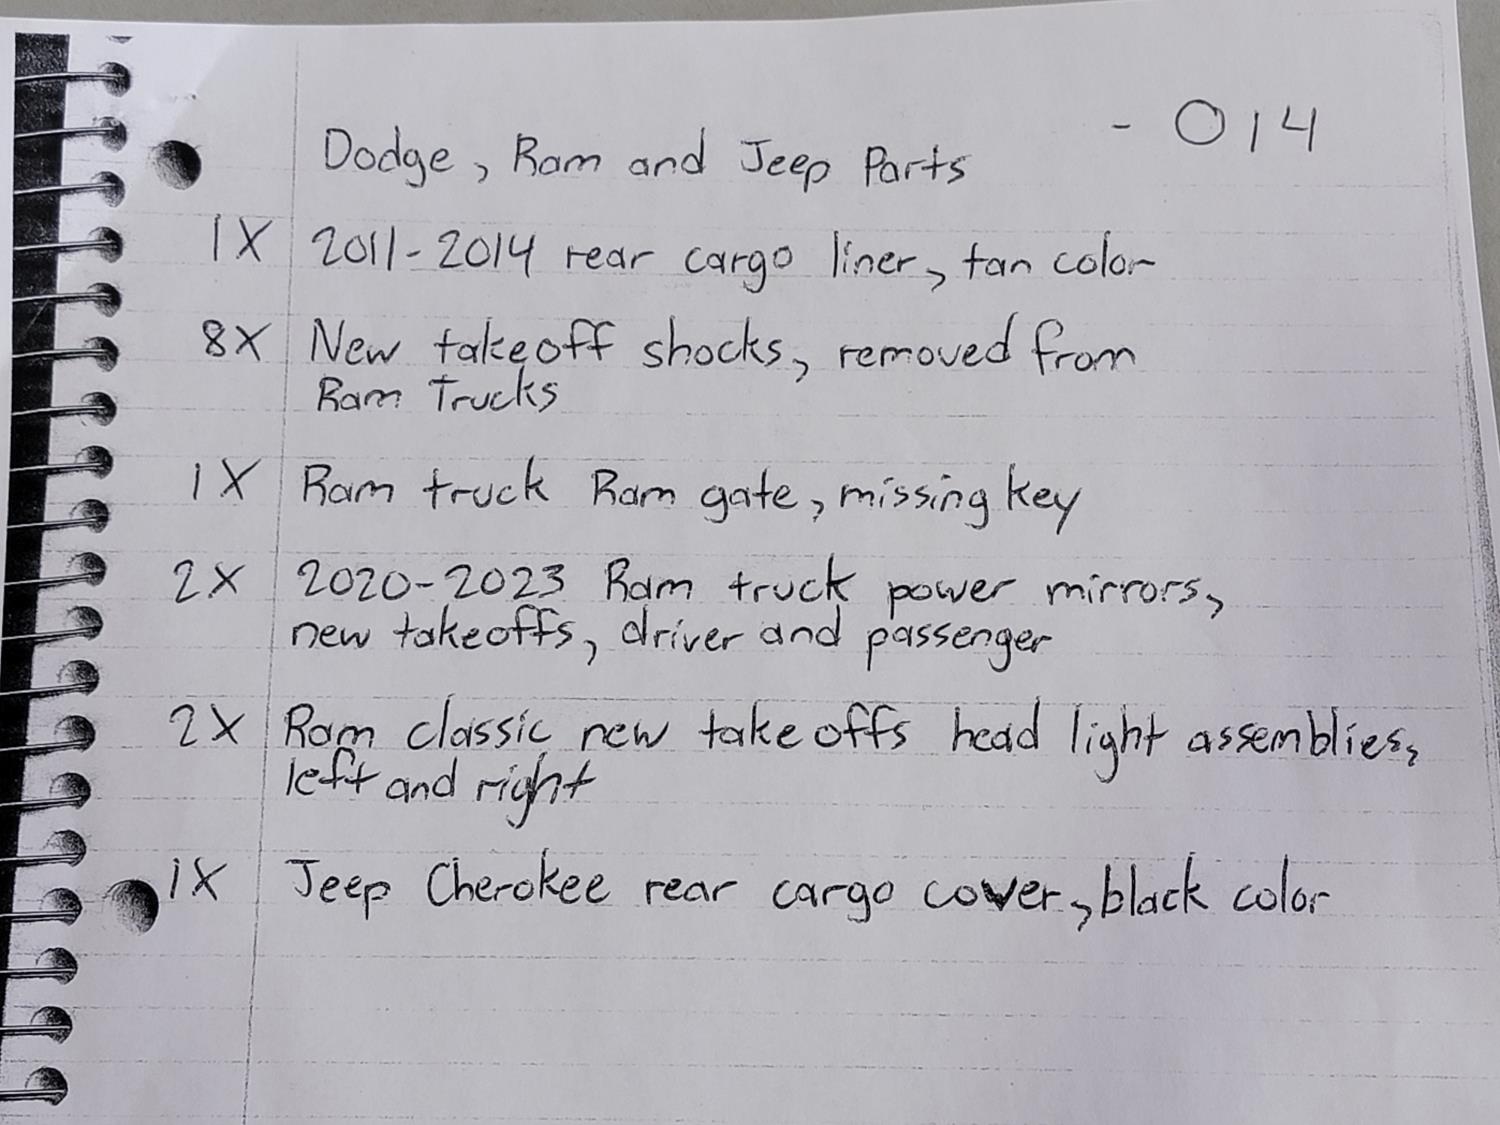 - 014
Dodge, Ram and Jeep Parts
1X 2011-2014 rear cargo liner, tan color
8X New takeoff shocks, removed from
Ram Trucks
1X Ram truck Ram gate, missing key
2X 2020-2023 Ram truck power mirrors,
new takeoffs, driver and passenger
2X Ram classic new takeoffs head light assemblies,
left and right
1X Jeep Cherokee rear cargo cover, black color